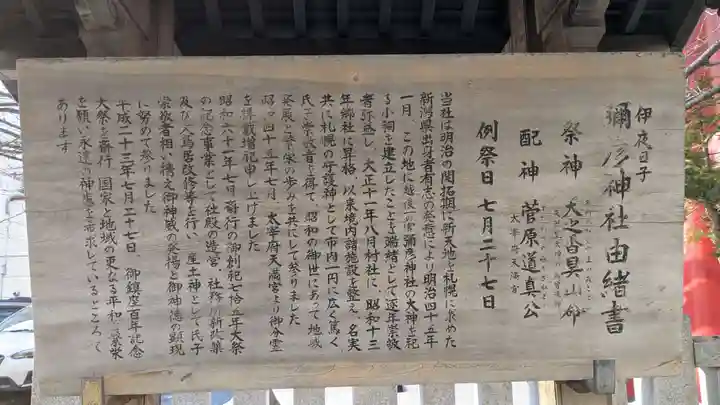 伊夜日子
彌彦神社由緒書
祭神 天之香具山命
配神 菅原道真公
太宰府天満宮
例祭日 七月二十七日
当社は明治の開拓期に新天地を札幌に求めた
新潟県出身者有志の発意により明治四十五年
一月、この地に越後一の宮彌彦神社の大神を祀
る小祠を建立したことを端緒として逐年崇敬
者弥熾し、大正十一年八月村社に、昭和十三
年郷社に昇格、以来境内諸施設を整え、名実
共に札幌の守護神として市内一円に広く篤く
氏子崇敬者を得て、昭和の御世にあって地域
発展と弥栄の歩みを共にして参りました
昭和四十五年七月、太宰府天満宮より御分霊
を拝戴増祀申し上げました
昭和六十一年七月斎行の御創祀七拾五年大祭
の記念事業として社殿の造営、社務所新改築
及び大鳥居改修等を行い、産土神として氏子
崇敬者相い携え御神威の発揚と御神徳の顕現
に努めて参りました
平成二十三年七月二十七日、御鎮座百年記念
大祭を斎行、国家と地域の更なる平和と繁栄
を願い永遠の神恵を希求しているところで
あります